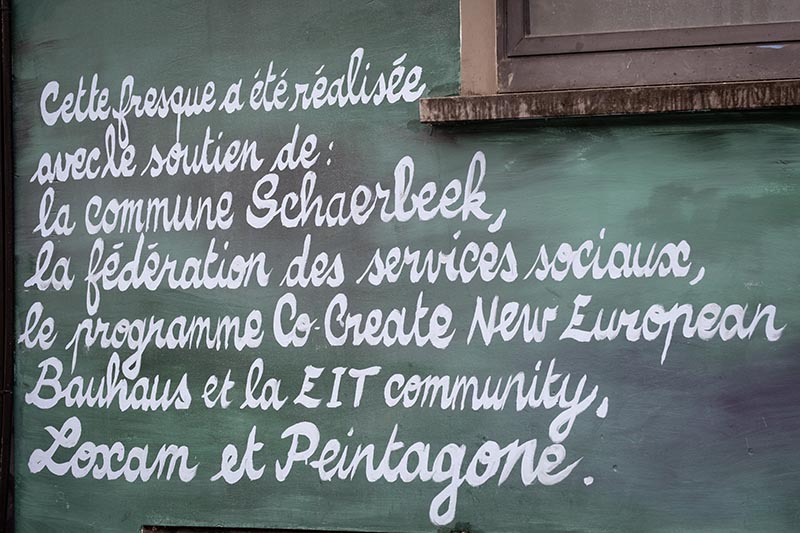 Cette fresque a été réalisée
avec le soutien de :
la commune Schaerbeek,
la fédération des services sociaux,
le programme Co-Create New European
Bauhaus et la EIT community,
Loxam et Peintagone.